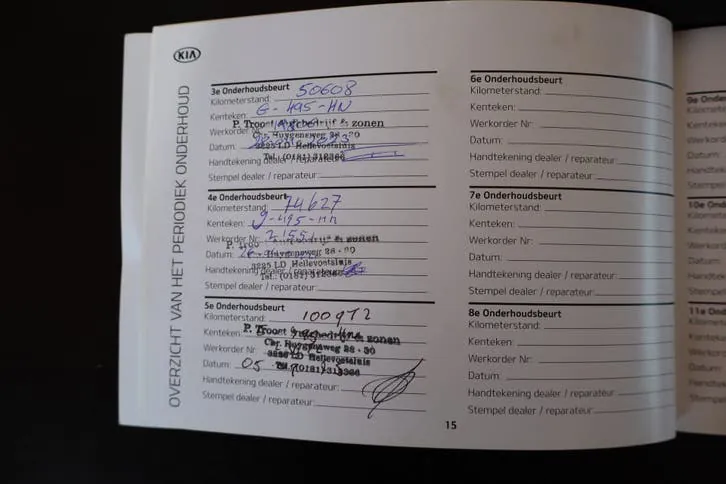 KIA
OVERZICHT VAN HET PERIODIEK ONDERHOUD
3e Onderhoudsbeurt
Kilometerstand: 50608
Kenteken: G-495-HN
P. Troost Autobedrijf & zonen
Werkorder Nr:
Chr. Huygensweg 28 - 30
Datum:
3225 LD Hellevoetsluis
Handtekening dealer / reparateur:
Tel.: (0181) 312366
Stempel dealer / reparateur:
4e Onderhoudsbeurt
Kilometerstand: 74627
Kenteken: g-495-HN
Werkorder Nr: 2155
P. Troost Autobedrijf & zonen
Datum:
Chr. Huygensweg 28 - 30
3225 LD Hellevoetsluis
Handtekening dealer / reparateur:
Tel.: (0181) 312366
Stempel dealer / reparateur:
5e Onderhoudsbeurt
Kilometerstand: 100972
Kenteken:
P. Troost Autobedrijf & zonen
Chr. Huygensweg 28 - 30
Werkorder Nr:
3225 LD Hellevoetsluis
Datum: 05
Tel.: (0181) 312366
Handtekening dealer / reparateur:
Stempel dealer / reparateur:
6e Onderhoudsbeurt
Kilometerstand:
Kenteken:
Werkorder Nr:
Datum:
Handtekening dealer / reparateur:
Stempel dealer / reparateur:
7e Onderhoudsbeurt
Kilometerstand:
Kenteken:
Werkorder Nr:
Datum:
Handtekening dealer / reparateur:
Stempel dealer / reparateur:
8e Onderhoudsbeurt
Kilometerstand:
Kenteken:
Werkorder Nr:
Datum:
Handtekening dealer / reparateur:
Stempel dealer / reparateur:
15